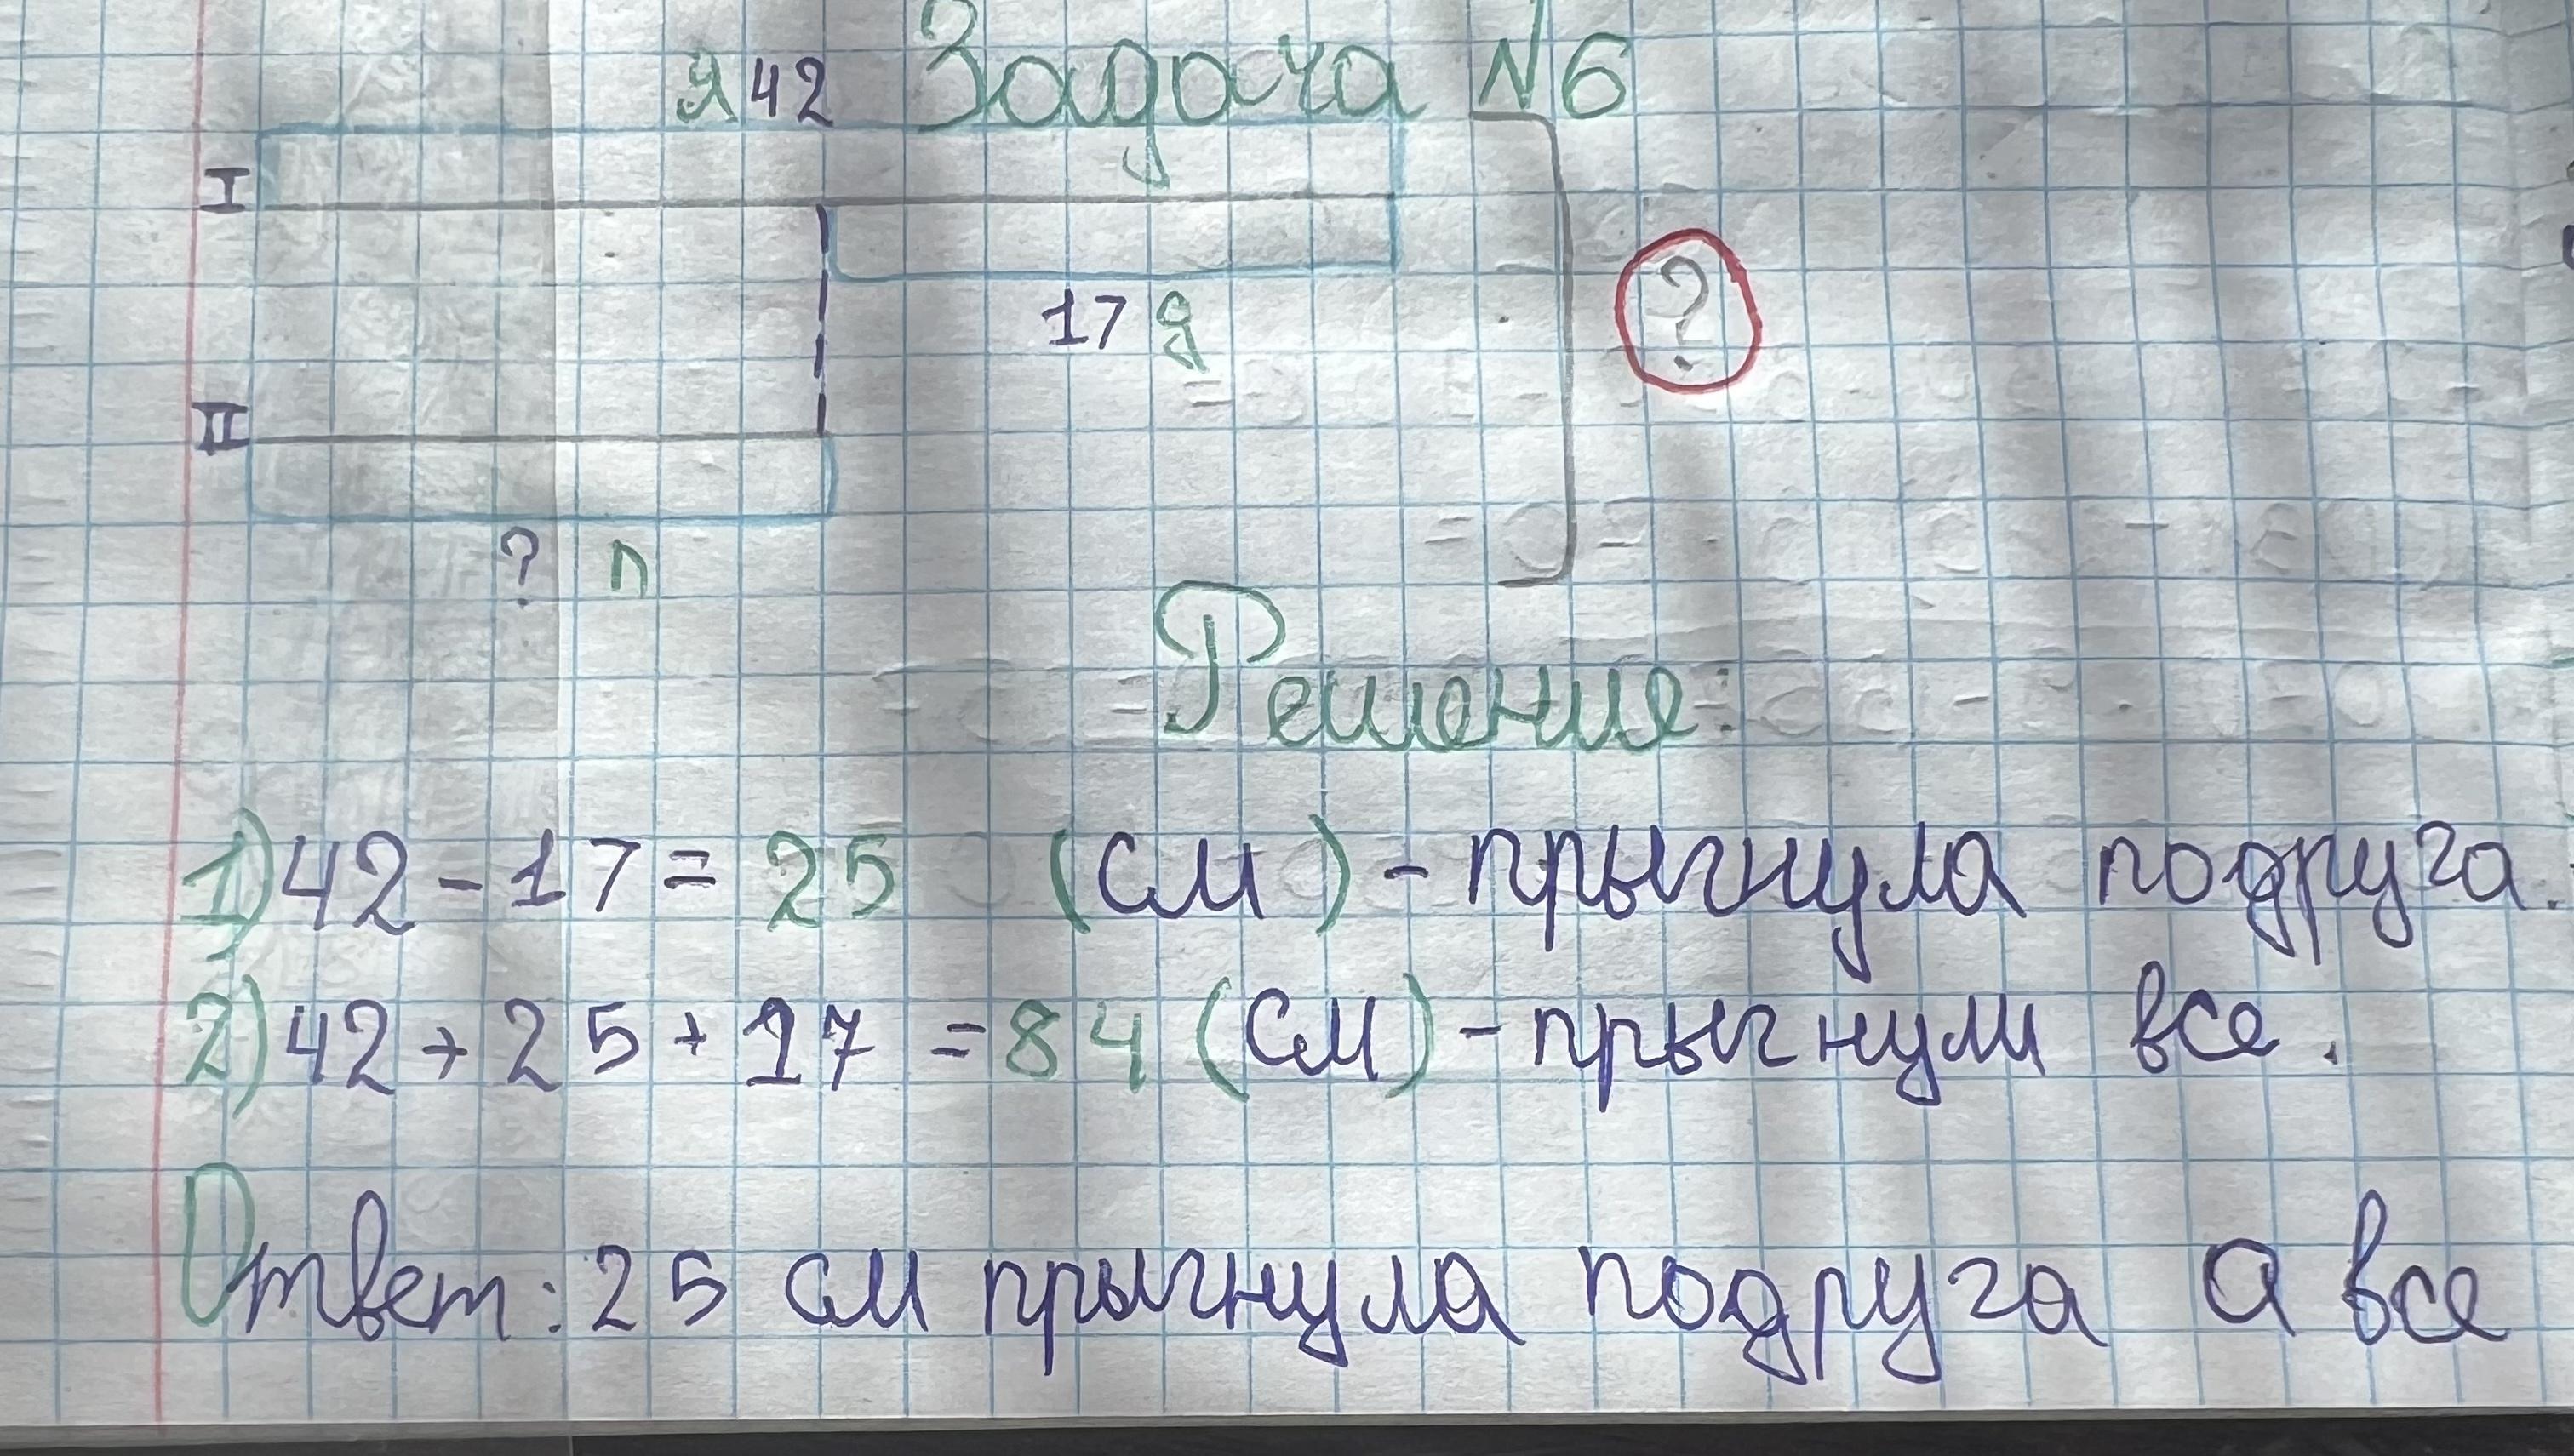 я 42 Задача №6
I
17 я
?
II
? п
Решение:
1) 42 - 17 = 25 (см) - прыгнула подруга.
2) 42 + 25 + 17 = 84 (см) - прыгнули все.
Ответ: 25 см прыгнула подруга а все